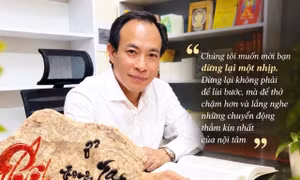 "Chúng tôi muốn mời bạn
dừng lại một nhịp.
Dừng lại không phải
để lùi bước, mà để thở
chậm hơn và lắng nghe
những chuyển động
thầm kín nhất
của nội tâm"